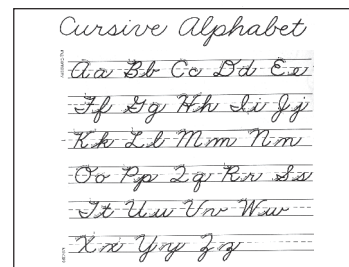 Cursive Alphabet
Aa Bb Cc Dd Ee
Ff Gg Hh Ii Jj
Kk Ll Mm Nn
Oo Pp Qq Rr Ss
Tt Uu Vv Ww
Xx Yy Zz